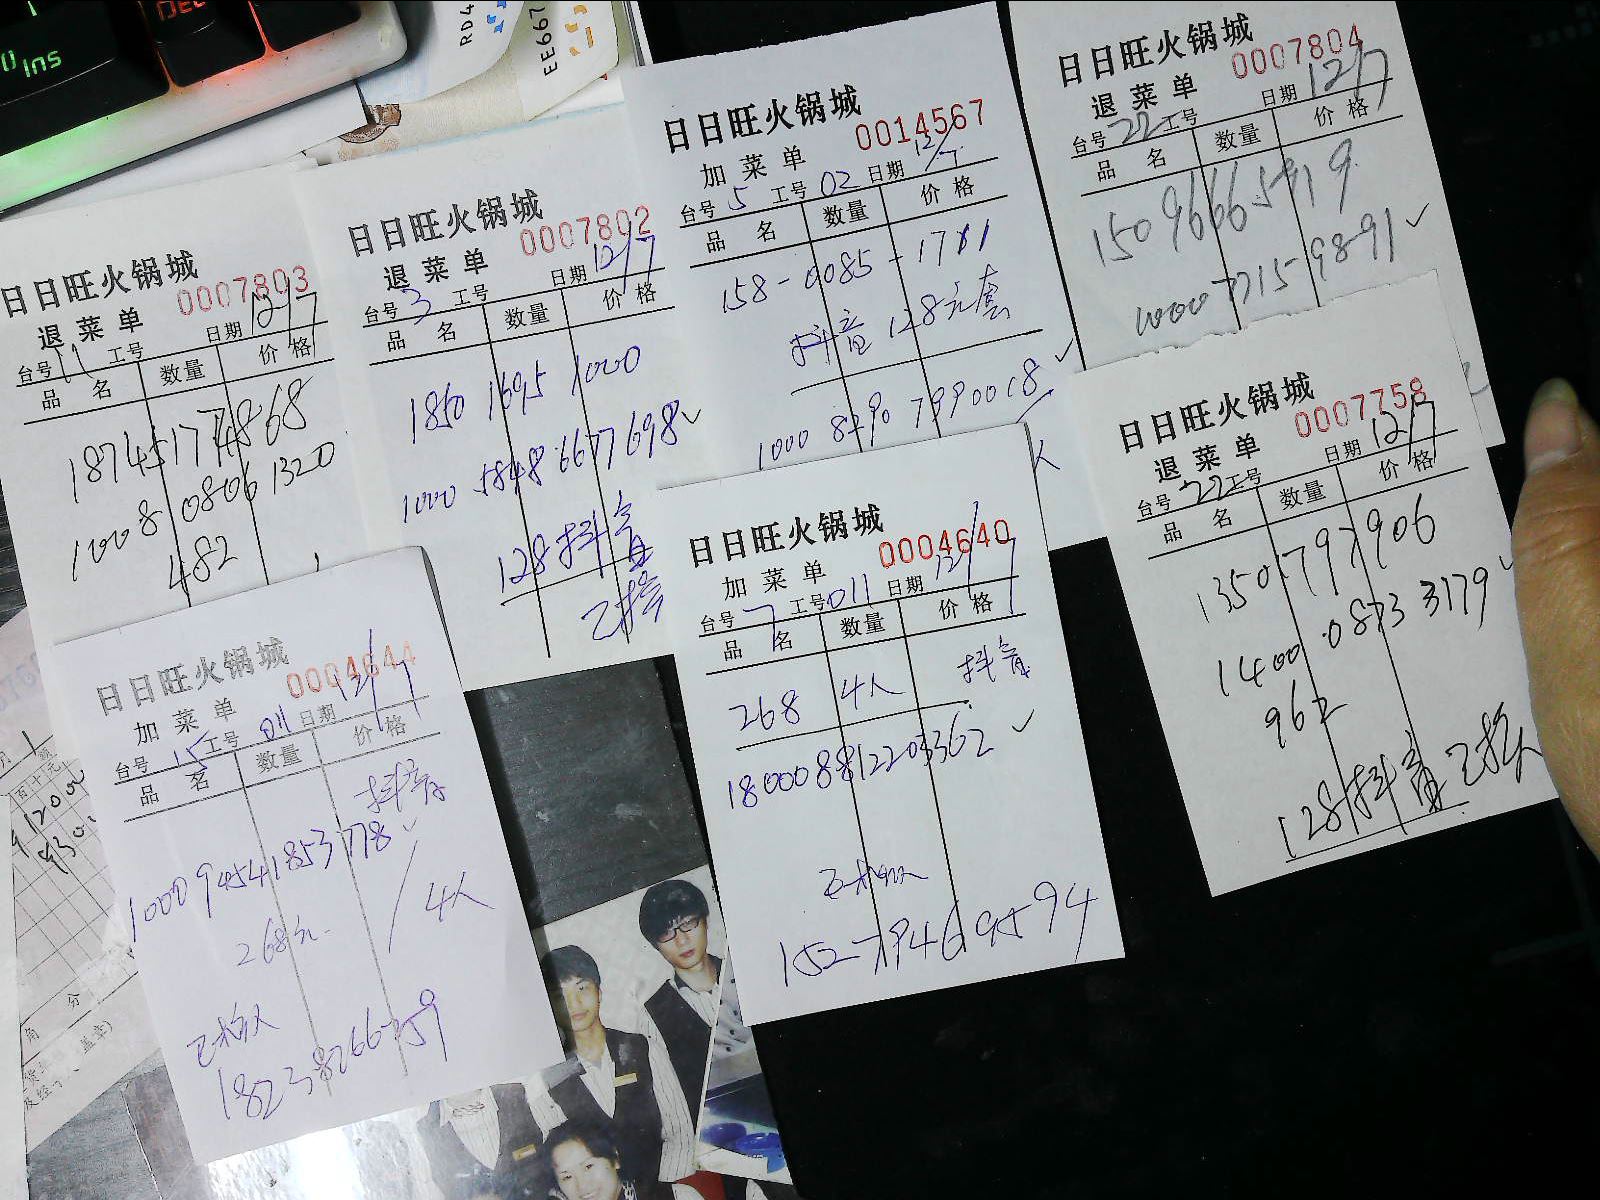 Ins
DEL
RD4
EE667
日日旺火锅城
0007803
退菜单
台号 11 工号 日期 12/7
品名 数量 价格
18745174868
1008 0806 1320
482
日日旺火锅城
0007802
退菜单
台号 3 工号 日期 12/7
品名 数量 价格
1850 1695 1000
1000 5848 6677698
128抖音
日日旺火锅城
0014567
加菜单
台号 5 工号 02 日期 12/7
品名 数量 价格
158-0085-1781
抖音128元套
1000 8290 7990018
人
日日旺火锅城
0007804
退菜单
台号 22 工号 日期 12/7
品名 数量 价格
15096665919
1000 7215 9891
日日旺火锅城
0004644
加菜单
台号 15 工号 011 日期 12/7
品名 数量 价格
抖音
1000 9454 1853 778
268元 4人
18238266759
日日旺火锅城
0004640
加菜单
台号 7 工号 011 日期 12/7
品名 数量 价格
268 4人 抖音
180008812203362
15279469594
日日旺火锅城
0007758
退菜单
台号 22 工号 日期 12/7
品名 数量 价格
1350 797906
1400 0873 3179
962
128抖音
角 分
盖章)